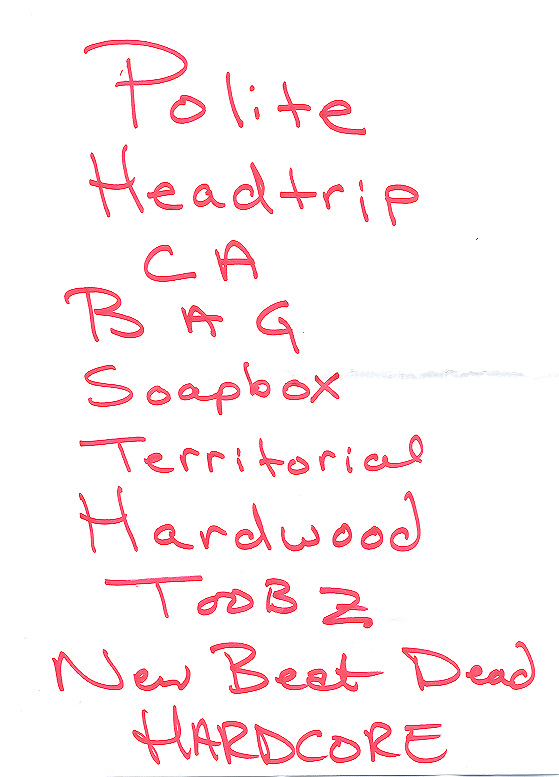 Polite
Headtrip
CA
BAG
Soapbox
Territorial
Hardwood
TooBZ
New Beat Dead
HARDCORE